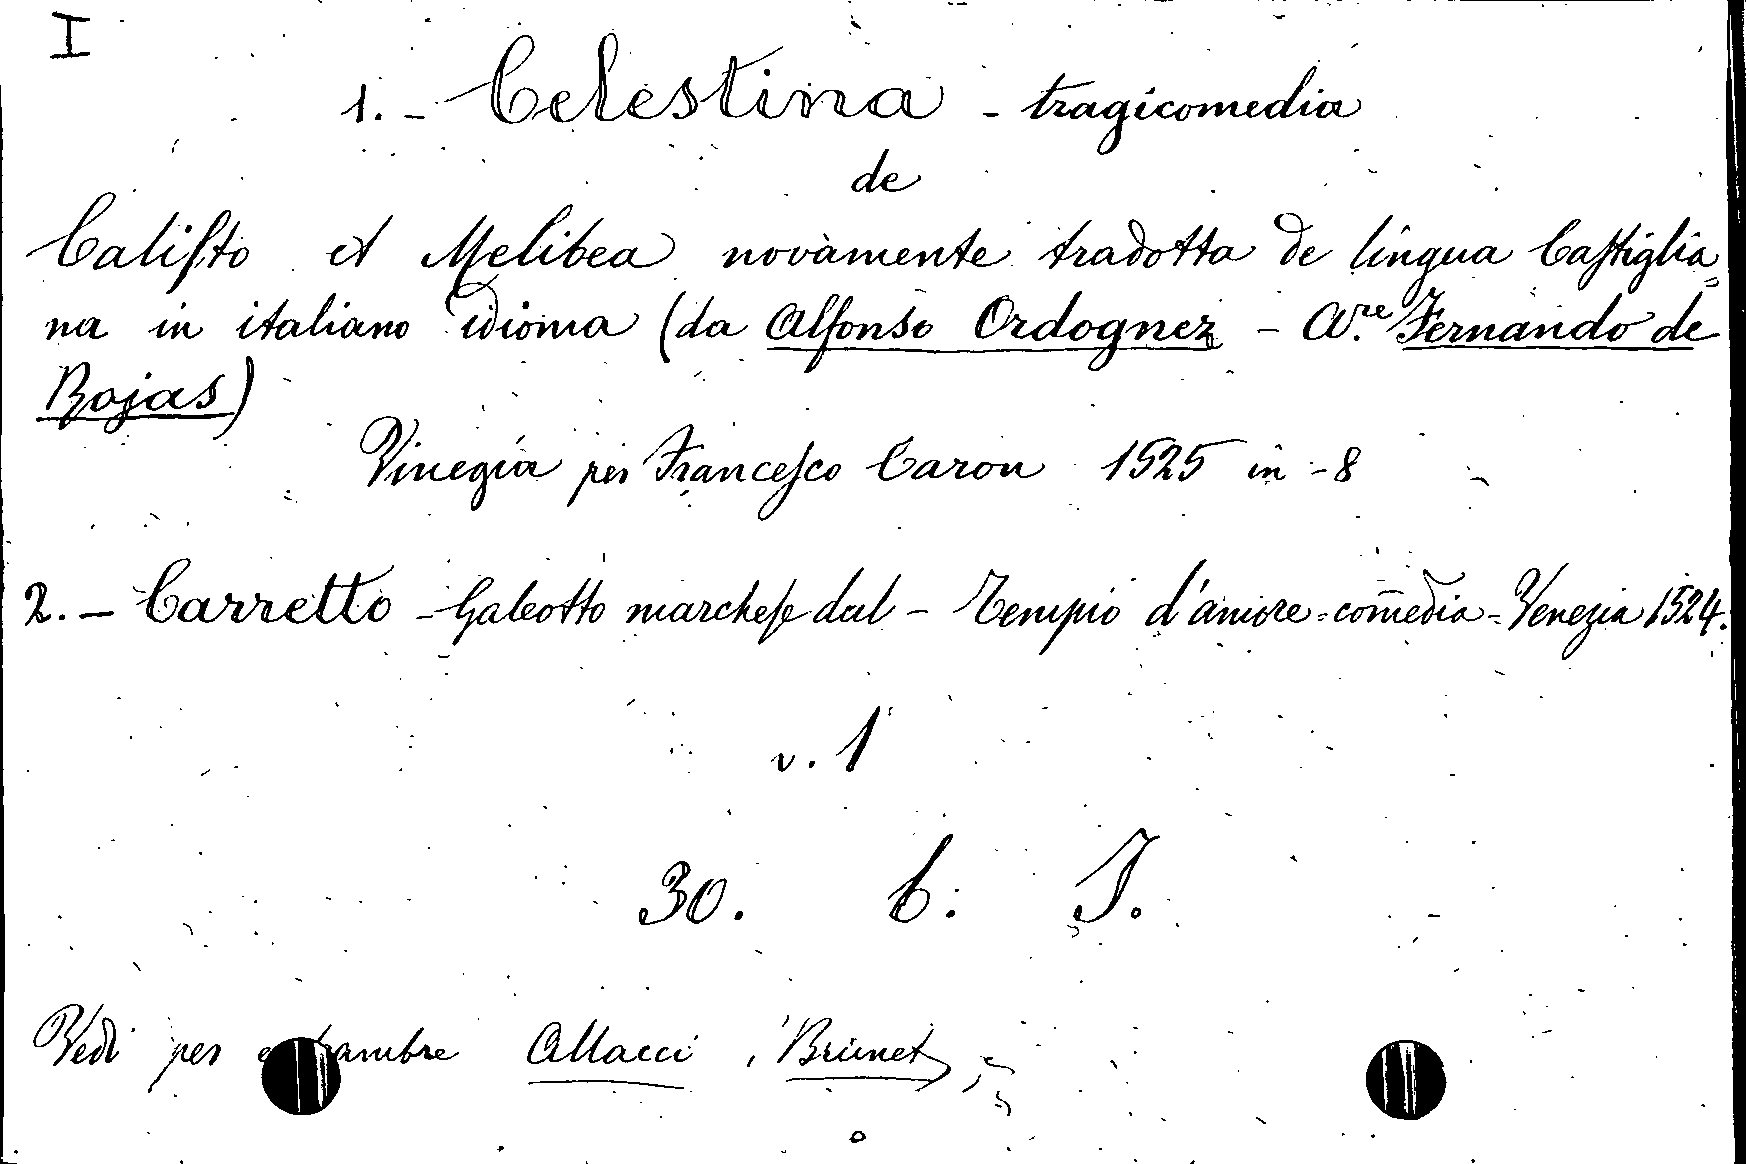 I
1. - Celestina - tragicomedia
de
Califto et Melibea novamente tradotta de lingua Caftiglia=
na in italiano idioma (da Alfonso Ordognez - A.re Fernando de
Rojas)
Vinegia per Francefco Caron 1525 in - 8
2. - Carretto - Galeotto marchefe dal - Tempio d'amore - com̃edia - Venezia 1524.
v. 1
30. b. I.
Vedi per entrambre Allacci, Brunet,